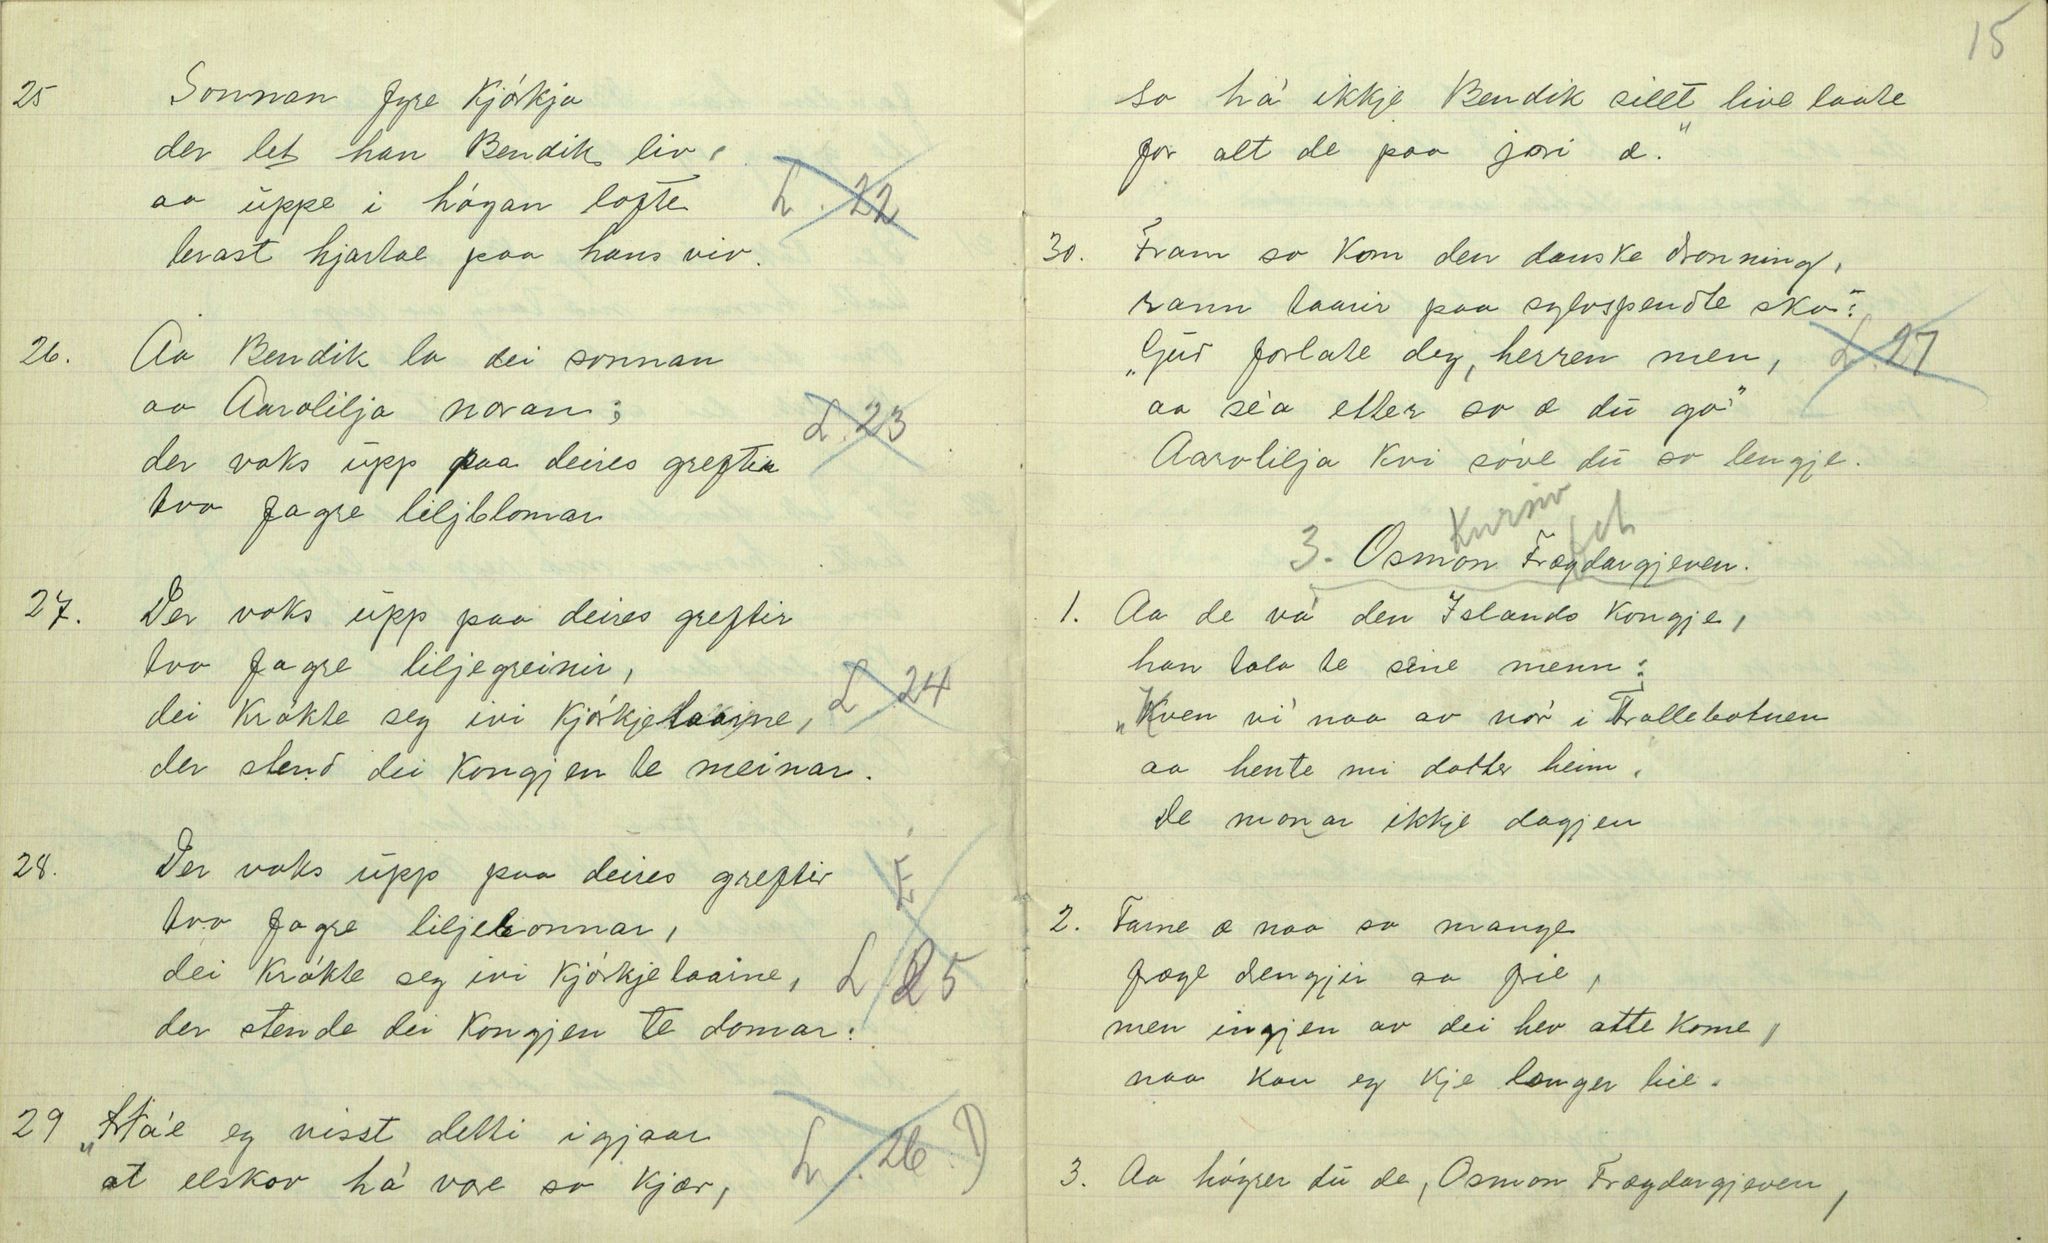 25 Sonnan fyre kjórkja
der let han Bendik liv,
aa uppe i hógan lofte L. 22
brast hjartae paa hans viv.
26. Aa Bendik la dei sonnan
aa Aarolilja noran; L. 23
der voks upp paa deires greftir
tvo fagre liljiblomar
27. Der voks upp paa deires greftir
tvo fagre liljegreinir,
dei krókte seg ivi kjórkjetaarne, L 24
der stend dei kongjen te meinar.
28. Der voks upp paa deires greftir
tvo fagre liljekonnar,
dei krókte seg ivi kjórkjetaarne, L 25
der stende dei kongjen te domar.
29 „Há'e eg visst detti igjaar
at elskov há' vore so kjær, L. 26. 1)
15
so há' ikkje Bendik sillt live laate
for alt de paa jori æ."
30. Fram so kom den danske dronning,
rann taarir paa sylvspendte sko:
„Gud forlate deg, herren men, L. 27
aa sea etter so æ du go"
Aarolilja kvi sóve du so lengje.
Kursiv fet
3. Osmon Frægdargjeven.
1. Aa de va' den Islands kongje,
han tala te sine menn:
„Kven vi' naa av nór' i Trollebotnen
aa hente mi dotter heim.
De monar ikkje dagjen
2. Farne æ naa so mange
fræge drengjir aa frie,
men ingjen av dei hev atte kome,
naa kan eg kje længer bie.
3. Aa hóyrer du de, Osmon Frægdargjeven,